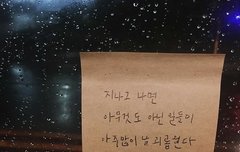 지나고 나면
아무것도 아닌 일들이
아주많이 날 괴롭혔다